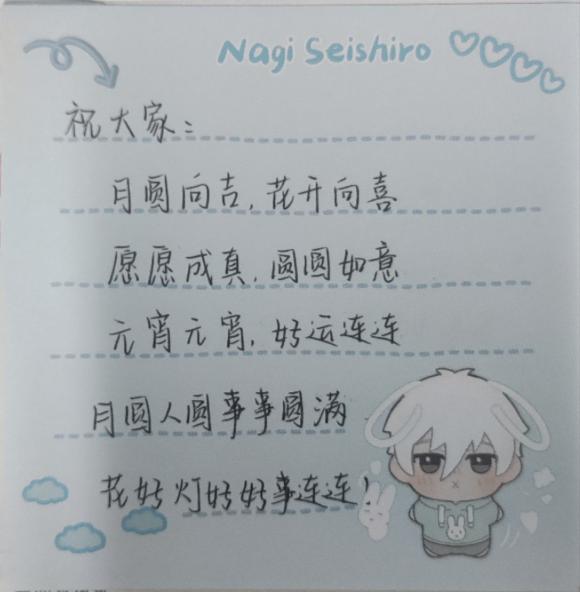 Nagi Seishiro
祝大家：
月圆向吉，花开向喜
愿愿成真，圆圆如意
元宵元宵，好运连连
月圆人圆事事圆满
花好灯好好事连连！